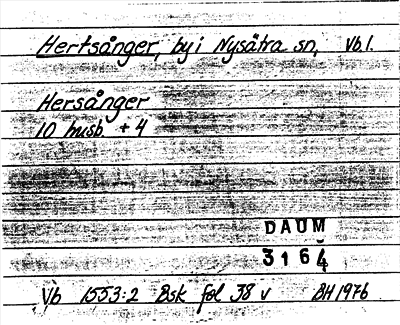 Hertsånger, by i Nysätra sn, Vb l.
Hersånger
10 husb. + 4
DAUM
3164
Vb 1553:2 Bsk fol 38 v BH 1976